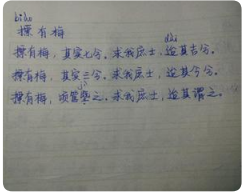 biào
摽有梅
dài
摽有梅，其实七兮。求我庶士，迨其吉兮。
摽有梅，其实三兮。求我庶士，迨其今兮。
摽有梅，顷筐塈之。求我庶士，迨其谓之。